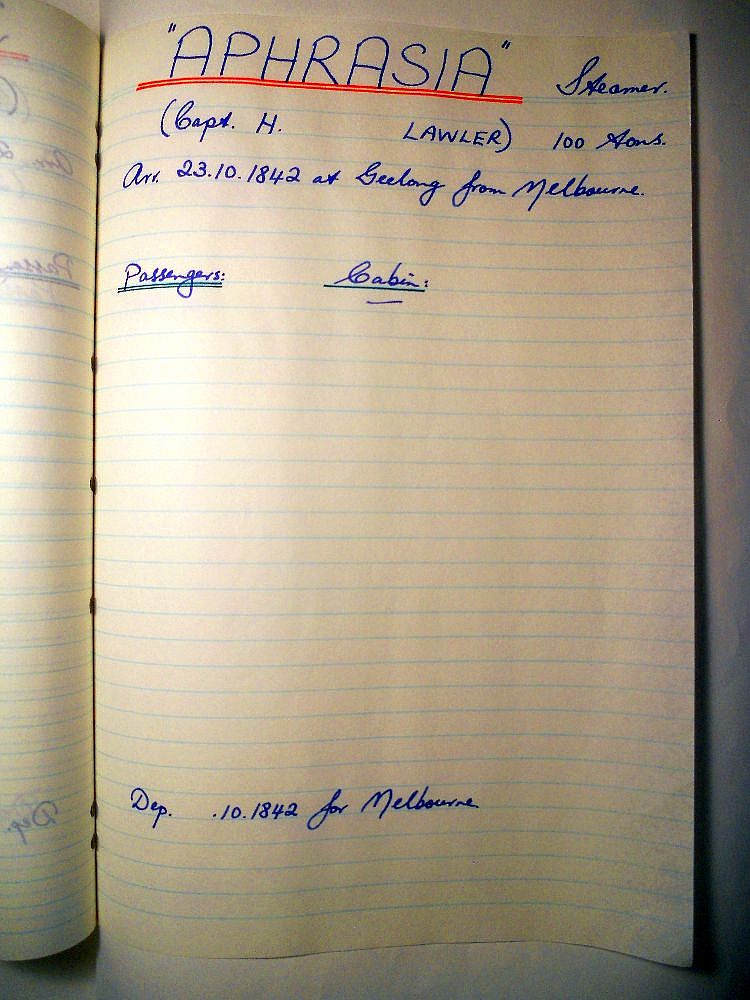 "APHRASIA" Steamer.
(Capt. H. LAWLER) 100 tons.
Arr. 23.10.1842 at Geelong from Melbourne.
Passengers: Cabin:
Dep. .10.1842 for Melbourne